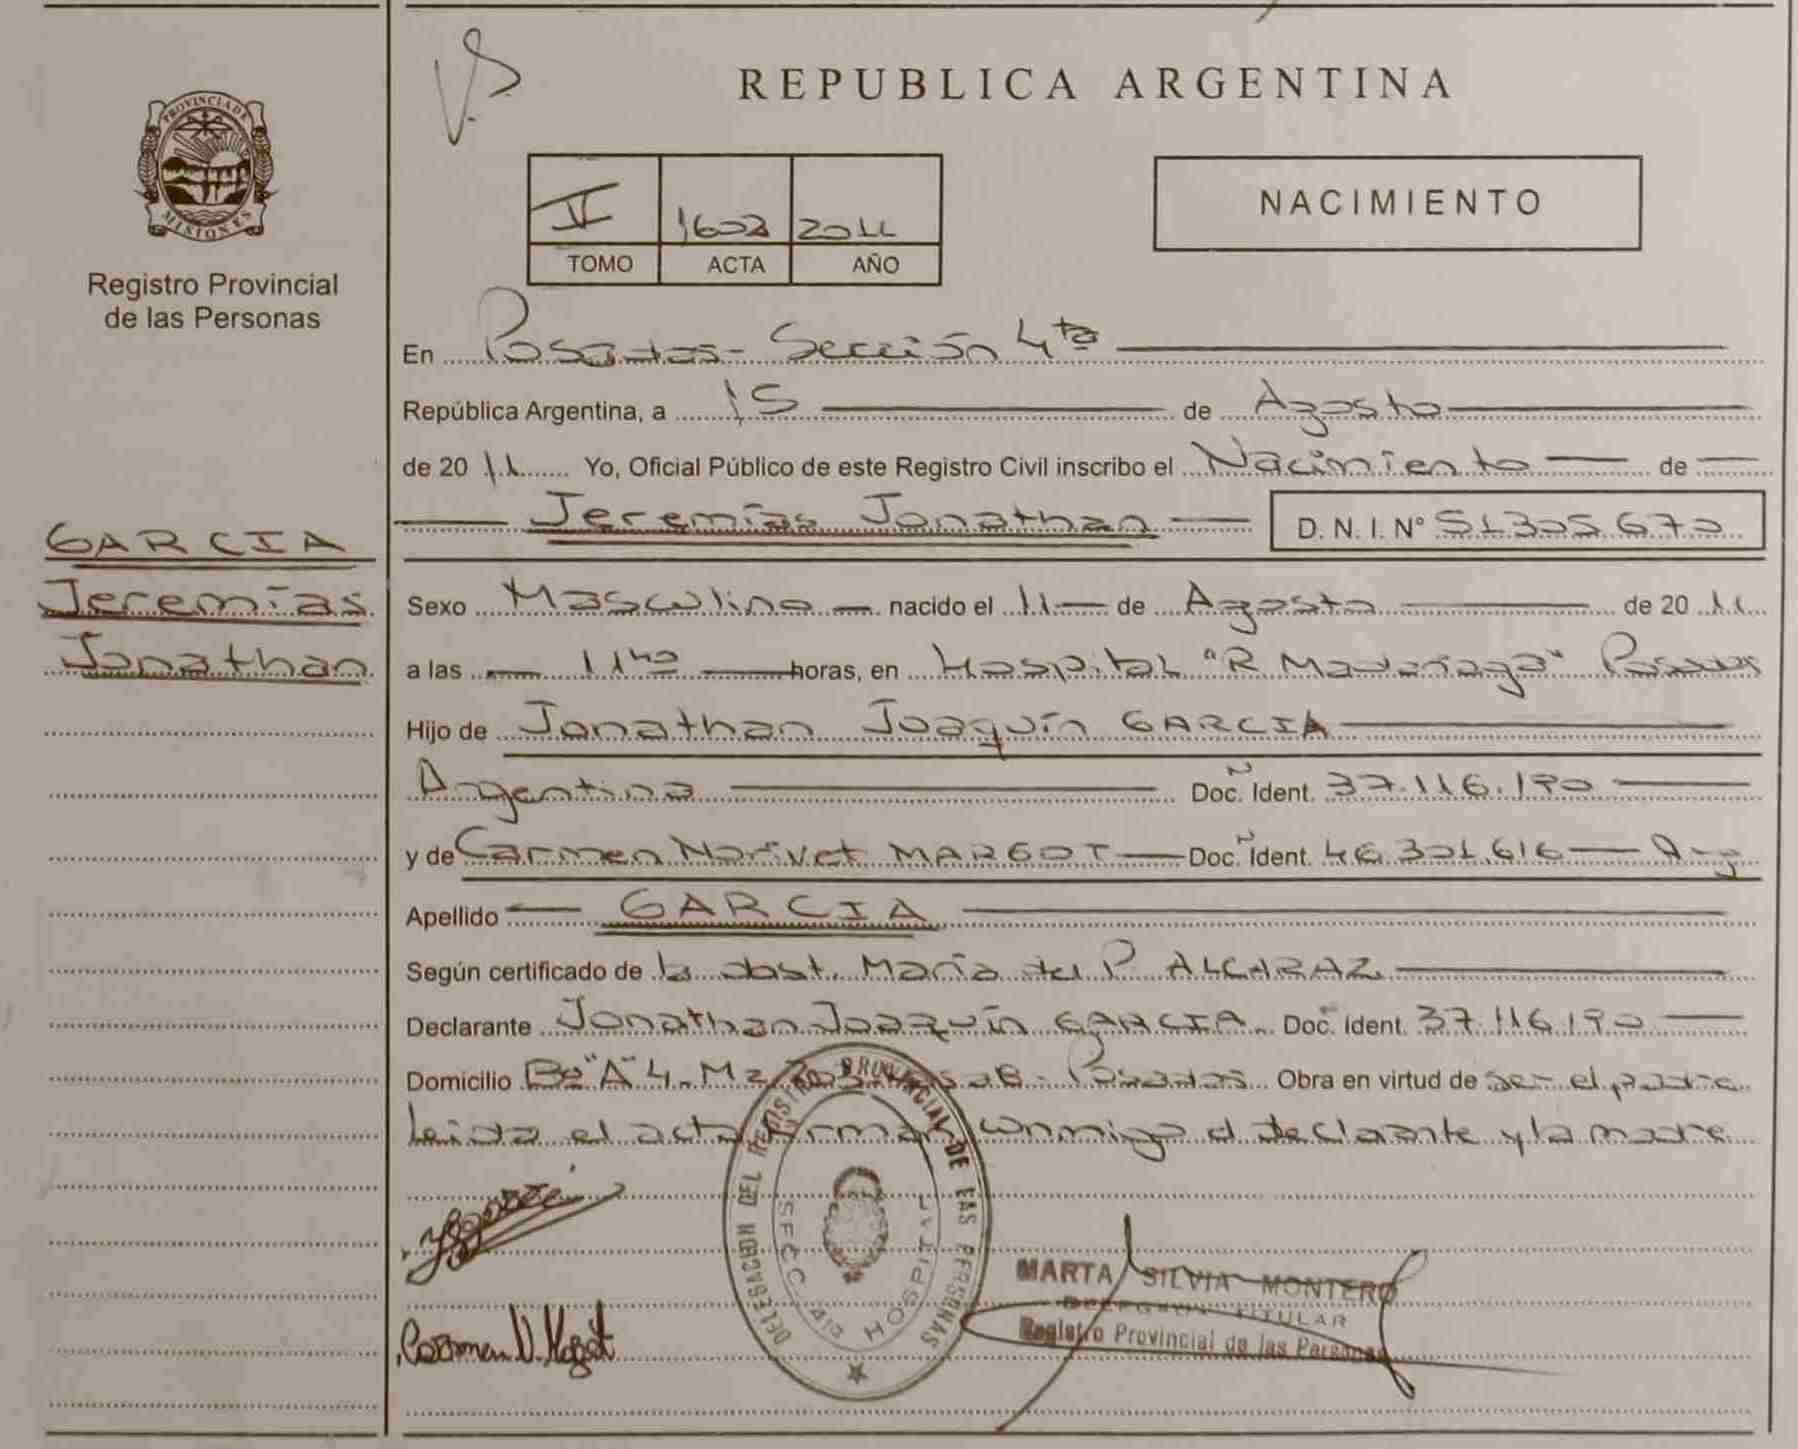 REPUBLICA ARGENTINA
PROVINCIA DE
MISIONES
Registro Provincial
de las Personas
II 1602 2011
TOMO ACTA AÑO
NACIMIENTO
En Posadas - Sección 4ta
República Argentina, a 15 de Agosto
de 20 11 Yo, Oficial Público de este Registro Civil inscribo el Nacimiento de
Jeremías Jonathan D. N. I. N° 51305670
GARCIA
Jeremías
Jonathan
Sexo Masculino nacido el 11 de Agosto de 20 11
a las 11 horas, en Hospital "R Madariaga" Posadas
Hijo de Jonathan Joaquín GARCIA
Argentina Doc. Ident. 37.116.190
y de Carmen Norivet MARGOT Doc. Ident. 46.301.616 Arg
Apellido GARCIA
Según certificado de la obst. María del P. ALCARAZ
Declarante Jonathan Joaquín GARCIA Doc. Ident. 37.116.190
Domicilio Bo "A" 4. Mz - Posadas Obra en virtud de ser el padre
Leida el acta firman conmigo el declarante y la madre
DELEGACION DEL REGISTRO PROVINCIAL DE LAS PERSONAS
SECC. 4ta HOSPITAL
MARTA SILVIA MONTERO
TITULAR
Registro Provincial de las Personas
Carmen N. Magot